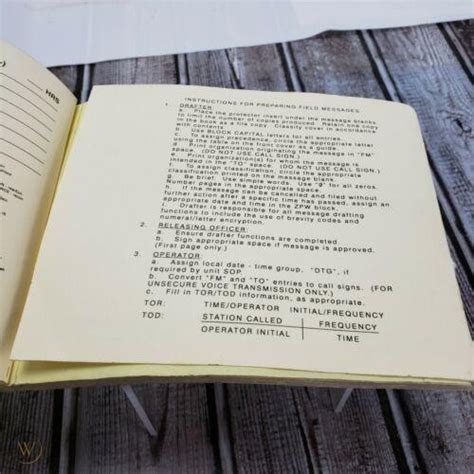 HRS
INSTRUCTIONS FOR PREPARING FIELD MESSAGES
1. DRAFTER:
a. Place the protector insert under the message blanks
to limit the number of copies produced. Retain one copy
in the book as a file copy. Classify cover in accordance
with contents.
b. Use BLOCK CAPITAL letters for all entries.
c. To assign precedence, circle the appropriate letter
using the table on the front cover as a guide.
d. Print organization originating the message in "FM"
space. (DO NOT USE CALL SIGN.)
e. Print organization(s) for whom the message is
intended in the "TO" space. (DO NOT USE CALL SIGN.)
f. To assign classification, circle the appropriate
classification printed on the message blank.
g. Be brief. Use simple words. Use "Ø" for all zeros.
Number pages in the appropriate space.
h. If the message can be cancelled and filed without
further action after a specific time has passed, assign an
appropriate date and time in the ZPW block.
i. Drafter is responsible for all message drafting
functions to include the use of brevity codes and
numeral/letter encryption.
2. RELEASING OFFICER:
a. Ensure drafter functions are completed.
b. Sign appropriate space if message is approved.
(First page only.)
3. OPERATOR:
a. Assign local date - time group, "DTG", if
required by unit SOP.
b. Convert "FM" and "TO" entries to call signs. (FOR
UNSECURE VOICE TRANSMISSION ONLY.)
c. Fill in TOR/TOD information, as appropriate.
TOR: TIME/OPERATOR INITIAL/FREQUENCY
TOD: STATION CALLED FREQUENCY
OPERATOR INITIAL TIME